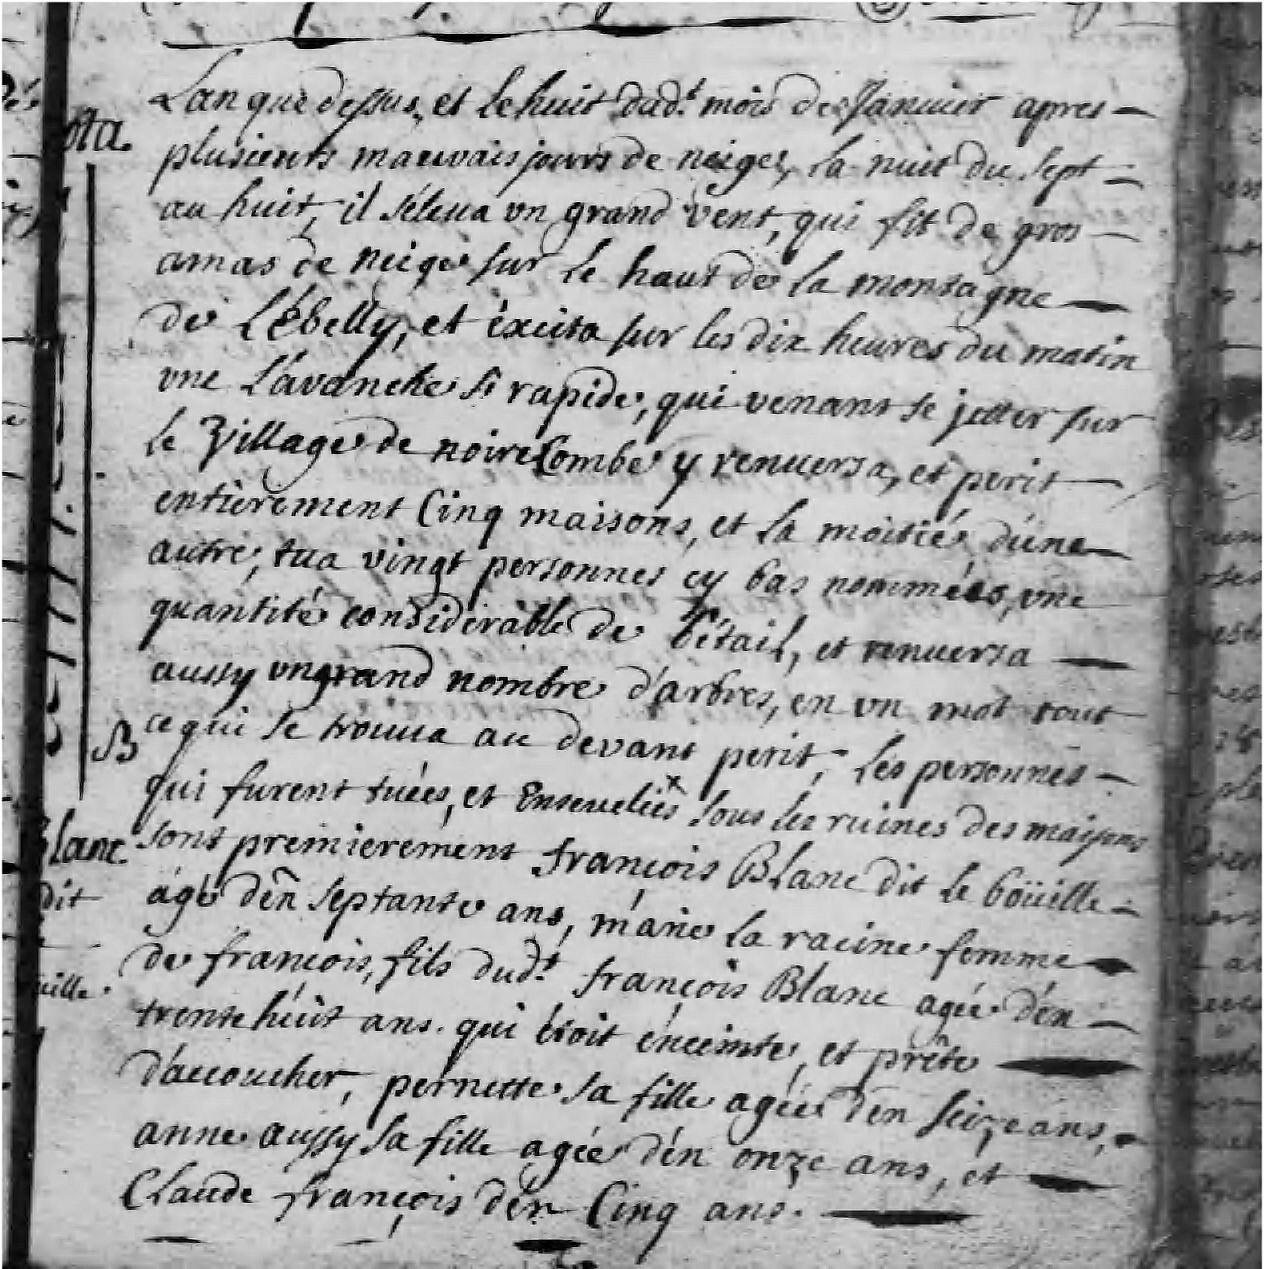 Lan que dessus, et le huit dud.t mois de Januier apres
ota.
plusieurs mauvais jours de neiges, la nuit du sept
au huit, il s'éleua vn grand vent, qui fit de gros
amas de neige sur le haut de la montagne
de Lébelly, et éxcita sur les dix heures du matin
vne Lávanche si rapide, qui venant se jetter sur
le Village de noire Combe y renuersa, et perit
entièrement Cinq maisons, et la moitié d'úne
autre, tua vingt personnes cy bas nommées, vne
quantité considerable de bétail, et renuersa
aussy vn grand nombre d'arbres, en vn mot tout
ce qui se trouua au devant perit, Les personnes
qui furent tuées, et Enseuelies sous les ruines des maisons
Blanc
sont premierement françois Blanc dit le boüille
dit
ágé d'én septante ans, marie la racine femme
de françois, fils dud.t françois Blanc agée d'én
uille
trente húit ans. qui étoit énceinte, et prête
d'accoucher, pernette sa fille agée d'én seize ans,
anne aussy sa fille agée d'én onze ans, et
Claude françois d'én Cinq ans.